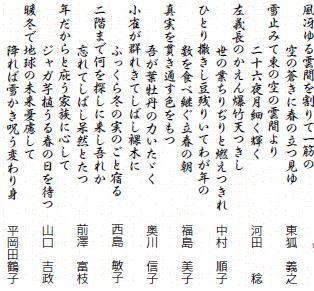 風冴ゆる雲間を割りて一筋の
空の蒼さに春の立つ見ゆ
東狐 義之
雪止みて東の空の雲間より
二十六夜月細く輝く
河田 稔
左義長のかえん爆竹天つきし
世の業ちりぢりと燃えつきれ
中村 順子
ひとり撒きし豆残りいてわが年の
数を食べ継ぐ立春の朝
福島 美子
真実を貫き通す色をもつ
吾が葉牡丹の力いたゞく
奥川 信子
小雀が群れきてしばし裸木に
ふっくら冬の実のごと宿る
西島 敏子
二階まで何を探しに来し吾れか
忘れてしばし呆然とたつ
前澤 富枝
年だからと庇う家族に心して
ジャガ芋植うる春の日を待つ
山口 吉政
暖冬で地球の未来憂慮して
降れば雪かき呪う変わり身
平岡田鶴子